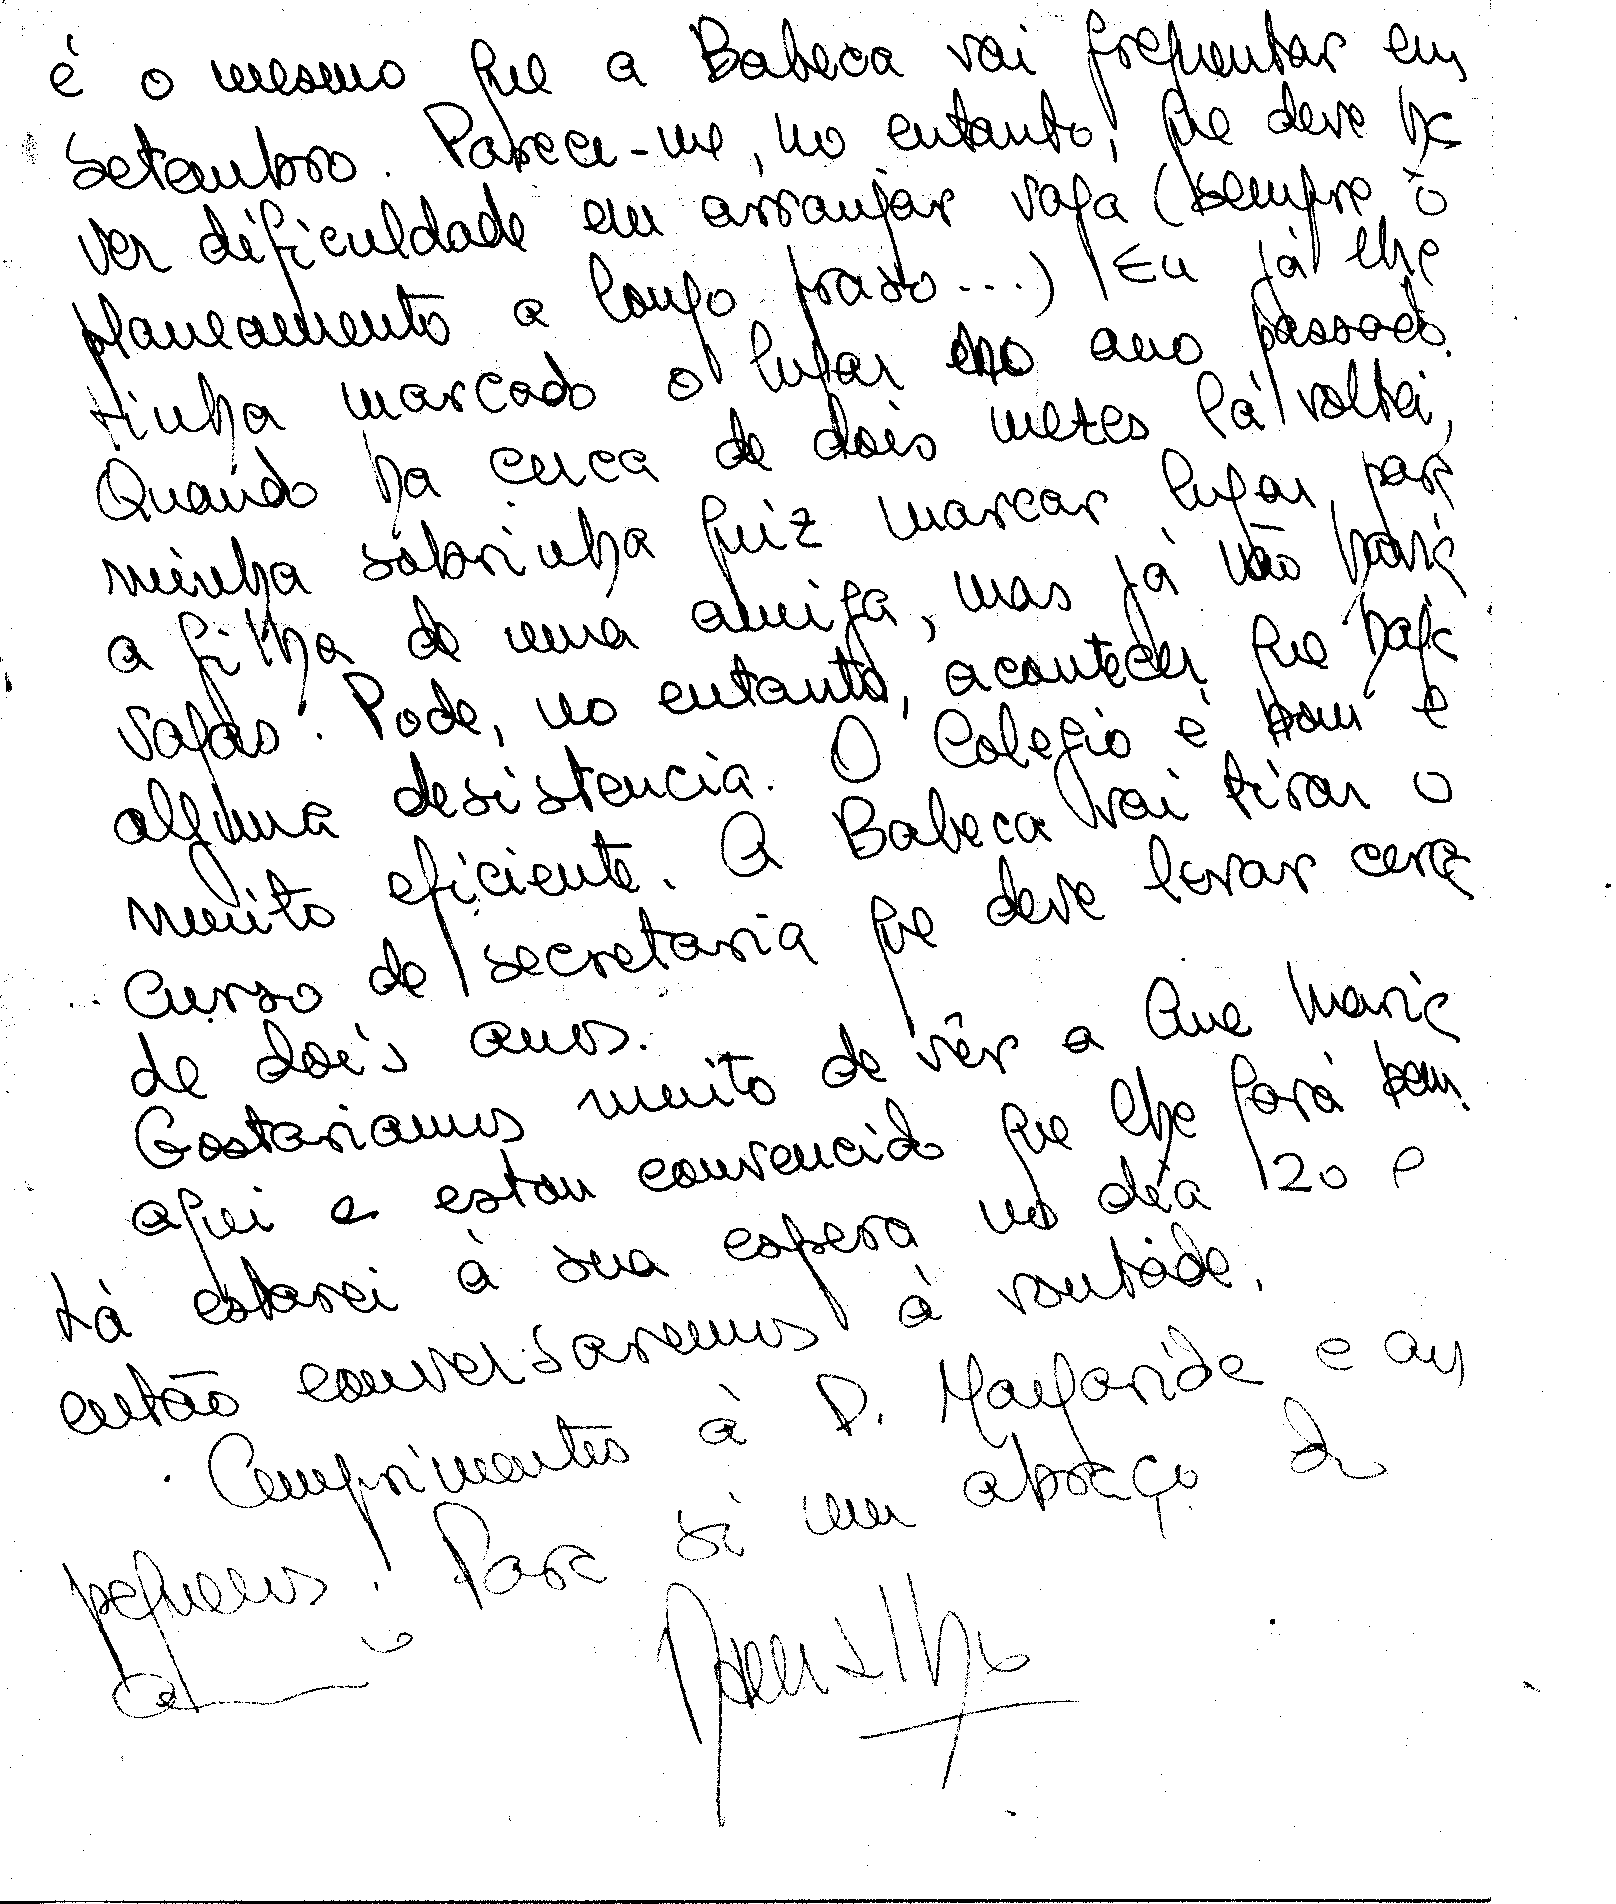 é o mesmo que a Babeca vai frequentar em
setembro. Parece-me, no entanto, que deve ha
ver dificuldade em arranjar vaga (sempre o
planeamento a longo praso...) Eu já lhe
tinha marcado o lugar no ano passado.
Quando ha cerca de dois mezes lá voltei,
minha sobrinha quiz marcar lugar para
a filha de uma amiga, mas já não havia
vagas. Pode, no entanto, acontecer que haja
alguma desistencia. O Colegio é bom e
muito eficiente. A Babeca vai tirar o
curso de secretaria que deve levar cerca
de dois anos.
Gostariamos muito de vêr a Ana Maria
aqui e estou convencido que lhe fará bem.
Lá estarei à sua espera no dia 20 e
então conversaremos à vontade.
Cumprimentos à D. Margarida e aos
pequenos. Para si um abraço do